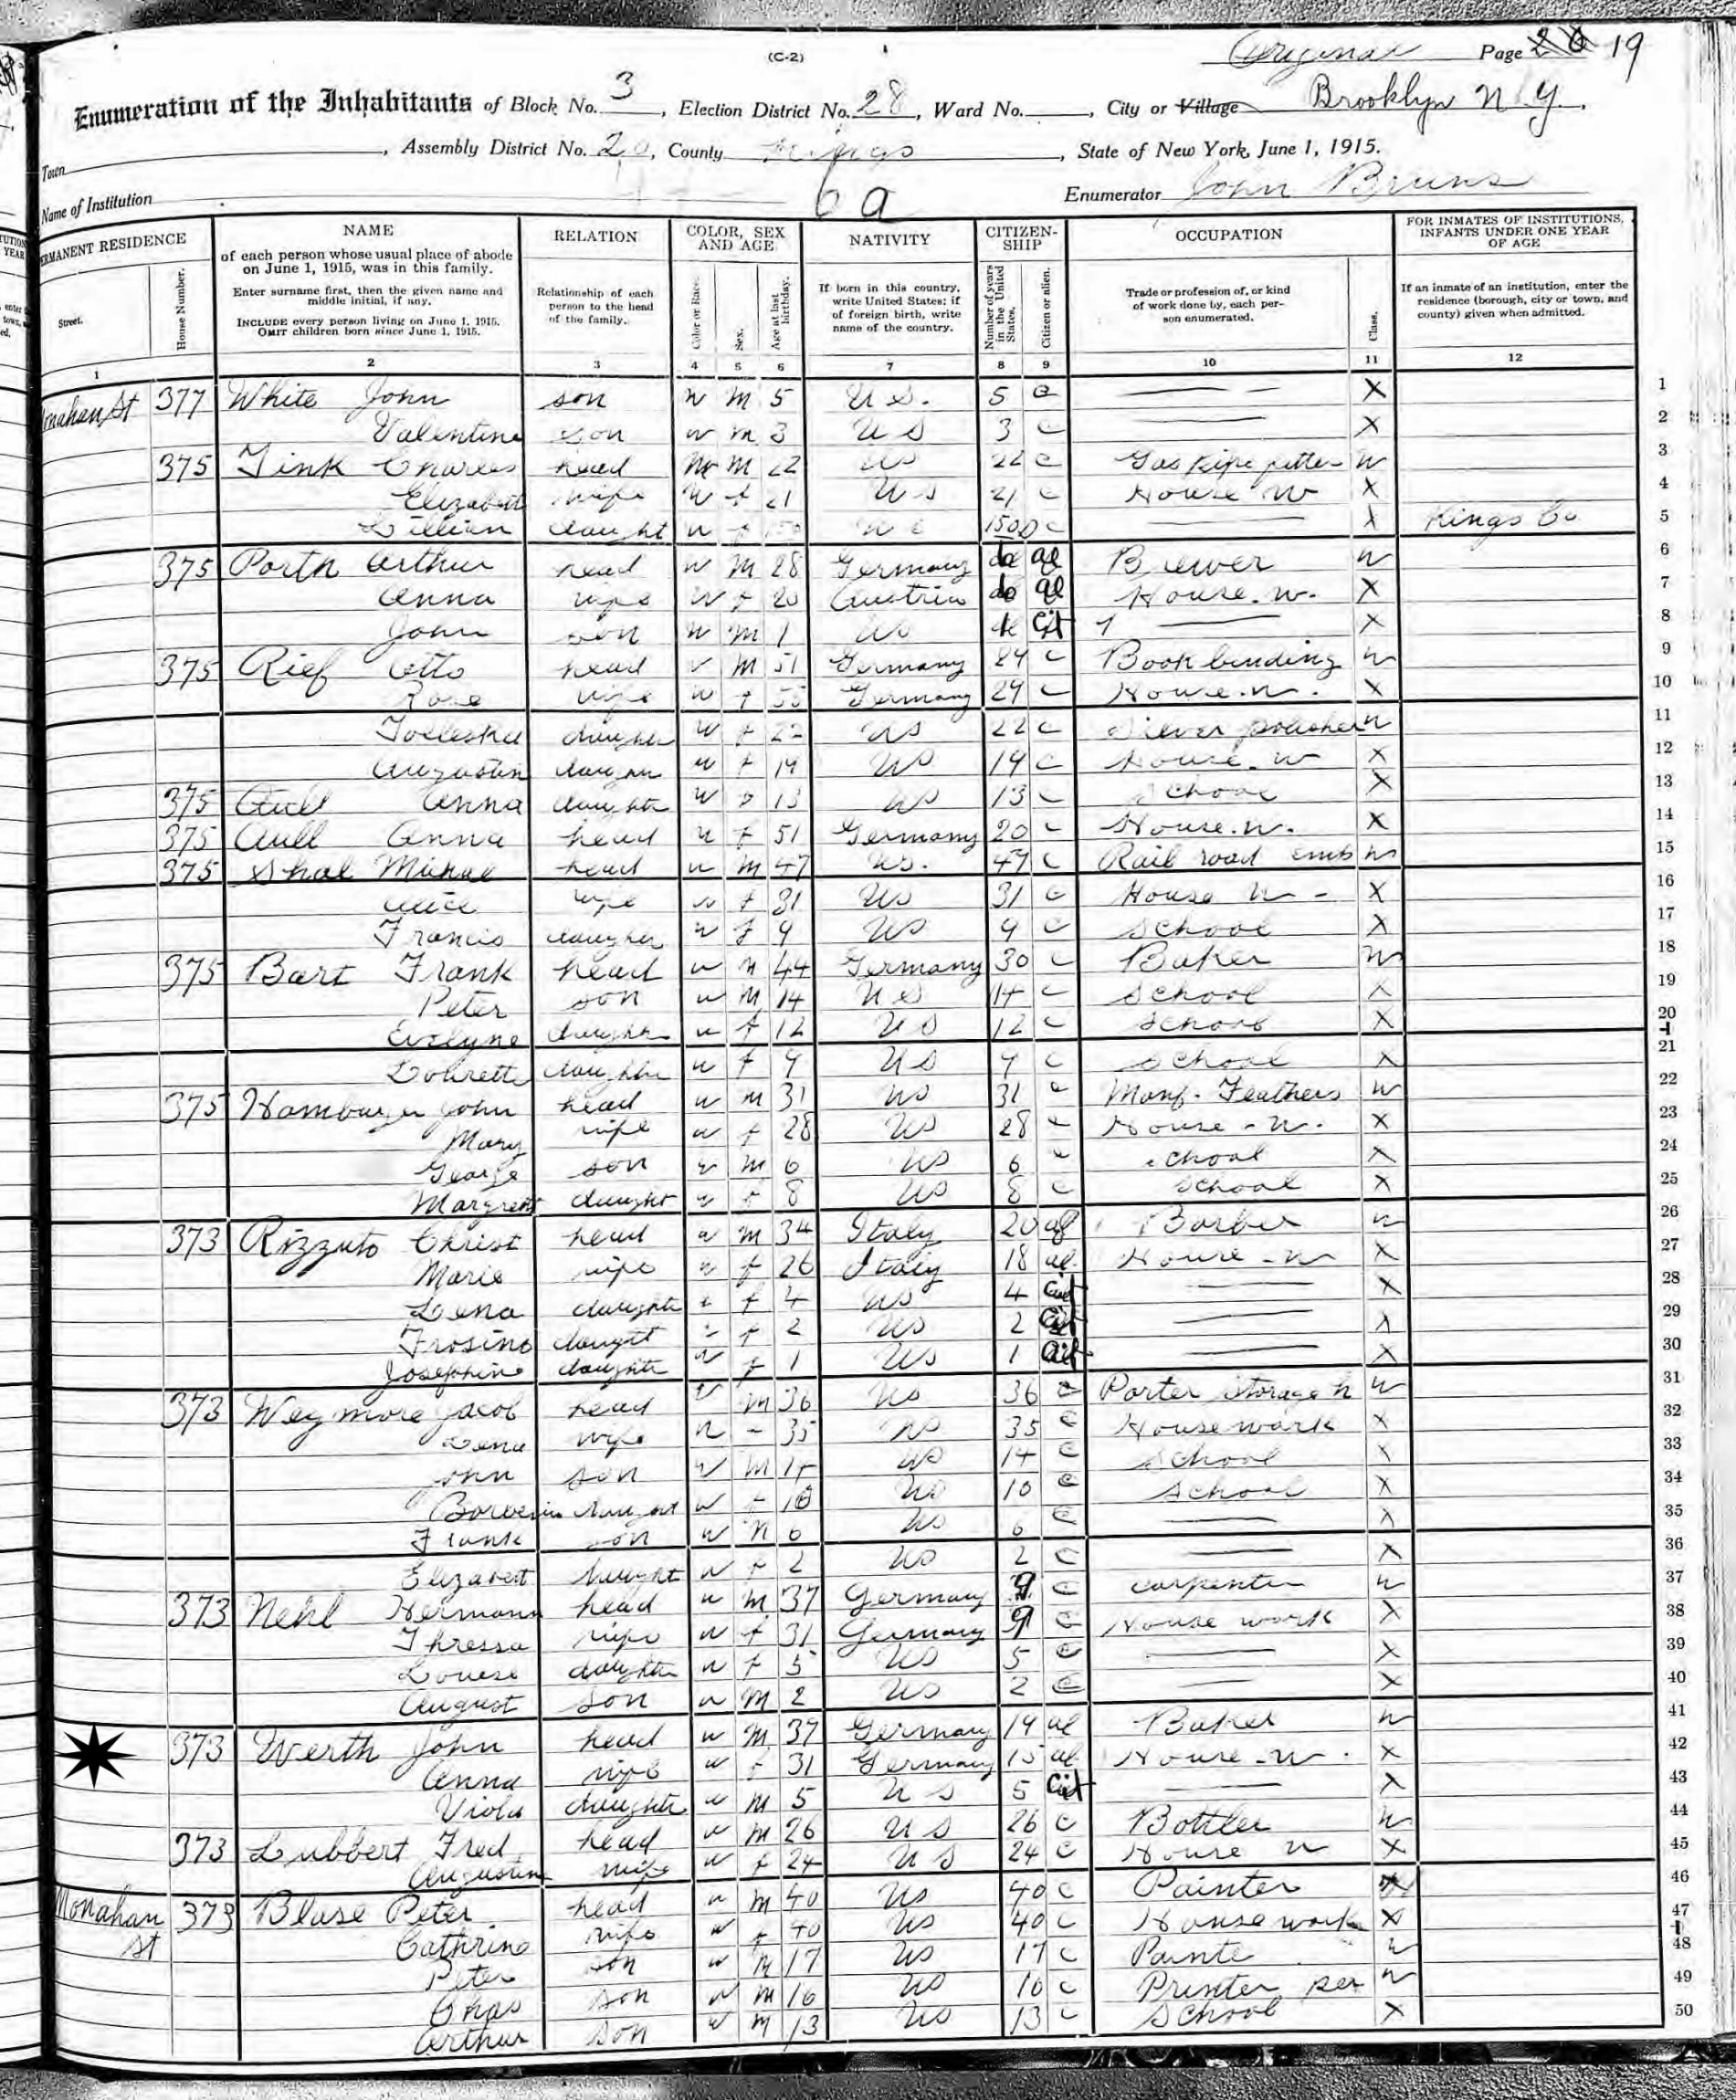 (C-2)
Original Page 26 19
Enumeration of the Inhabitants of Block No. 3, Election District No. 28, Ward No. , City or Village Brooklyn N.Y.
Town , Assembly District No. 20, County Kings , State of New York, June 1, 1915.
Name of Institution 6a Enumerator John Bruns
PERMANENT RESIDENCE NAME RELATION COLOR, SEX AND AGE NATIVITY CITIZENSHIP OCCUPATION FOR INMATES OF INSTITUTIONS, INFANTS UNDER ONE YEAR OF AGE
Street. House Number.
of each person whose usual place of abode on June 1, 1915, was in this family.
Enter surname first, then the given name and middle initial, if any.
INCLUDE every person living on June 1, 1915.
OMIT children born since June 1, 1915.
Relationship of each person to the head of the family.
Color or Race. Sex. Age at last birthday.
If born in this country, write United States; if of foreign birth, write name of the country.
Number of years in the United States. Citizen or alien.
Trade or profession of, or kind of work done by, each person enumerated. Class.
If an inmate of an institution, enter the residence (borough, city or town, and county) given when admitted.
1 2 3 4 5 6 7 8 9 10 11 12
St 377 White John son w m 5 U S. 5 c X 1
Valentine son w m 3 U S 3 c X 2
375 Charles head m 22 US 22 c Gas Pipe fitter w 3
Elizabet wife w f 21 U S 21 c House W X 4
Lillian daught w f U S c X Kings Co 5
375 Porth Arthur head w m 28 Germany al Brewer w 6
Anna wife w f 20 Austria al House. w. X 7
John son w m 1 US Cit X 8
375 Rief Otto head w m 51 Germany 29 c Book binding w 9
Rose wife w f 55 Germany 29 c House. w. X 10
daughter w f 22 US 22 c Silver polisher w 11
Augusten daughter w f 19 US 19 c House. w X 12
375 Aull Anna daughter w f 13 US 13 c School X 13
375 Aull Anna head w f 51 Germany 20 c House. w. X 14
375 Michael head w m 47 US. 47 c Rail road w 15
Alice wife w f 31 US 31 c House w - X 16
Francis daughter w f 9 US 9 c School X 17
375 Bart Frank head w m 44 Germany 30 c Baker w 18
Peter son w m 14 U S 14 c School X 19
Evelyne daughter w f 12 U S 12 c School X 20
Lourette daughter w f 9 U S 9 c School X 21
375 Hamburger John head w m 31 US 31 c Manf. Feathers w 22
Mary wife w f 28 US 28 c House - w. X 23
George son w m 6 US 6 c School X 24
Margrett daught w f 8 US 8 c School X 25
373 Rizzuto Christ head w m 34 Italy 20 al Barber w 26
Marie wife w f 26 Italy 18 al House - w X 27
Lena daughter w f 4 US 4 Cit X 28
Frosino daught w f 2 US 2 Cit X 29
Josephine daughter w f 1 US 1 Cit X 30
373 Weymore Jacob head w m 36 US 36 c Porter storage h w 31
Lena wife w 35 US 35 c Housework X 32
John son w m US 14 c School X 33
daught w f 10 US 10 c School X 34
Frank son w m 6 US 6 c X 35
Elizabet daught w f 2 US 2 c X 36
373 Nehl Hermann head w m 37 Germany 9 c carpenter w 37
Thressa wife w f 31 Germany 9 c House work X 38
Louese daughter w f 5 US 5 c X 39
August son w m 2 US 2 c X 40
373 Werth John head w m 37 Germany 19 al Baker w 41
Anna wife w f 31 Germany 15 al House - w. X 42
Viola daughter w m 5 U S 5 Cit X 43
373 Lubbert Fred head w m 26 U S 26 c Bottler w 44
Augustine wife w f 24 U S 24 c House w X 45
Monahan St 373 Blase Peter head w m 40 US 40 c Painter 46
Cathrine wife w f 40 US 40 c House work X 47
Peter son w m 17 US 17 c Painte w 48
Chas son w m 16 US 16 c Printer w 49
Arthur son w m 13 US 13 c School X 50